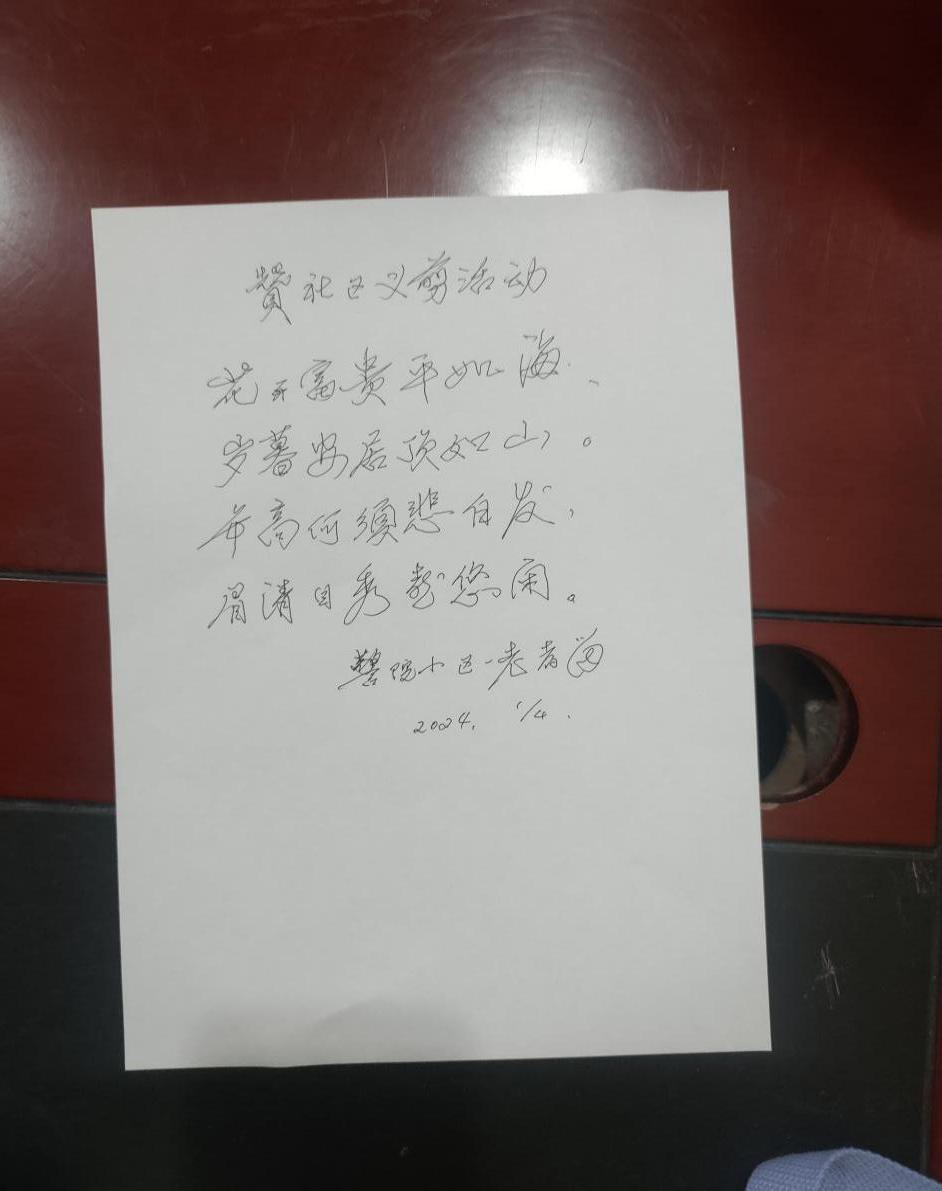 赞社区义剪活动
花开富贵平如海、
岁暮安居顶如山。
年高何须悲白发,
眉清目秀您闲。
警院小区一老者
2024. 1/4.